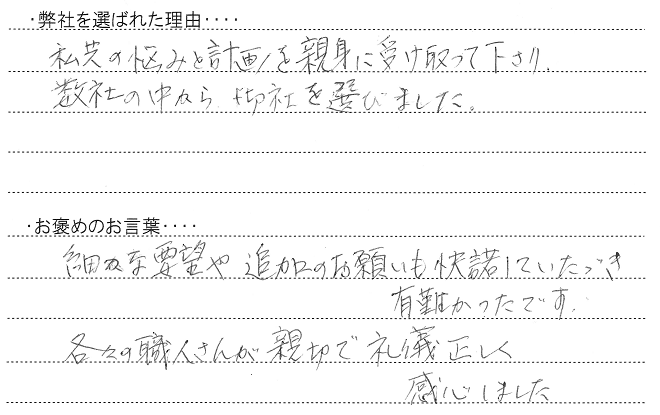 ・弊社を選ばれた理由・・・・
私共の悩みと計画を親身に受け取って下さり、
数社の中から 切社を選びました。
・お褒めのお言葉・・・・
細かな要望や 追加のお願いも快諾していただき
有難かったです。
各々の職人さんが 親切で 礼儀正しく
感心しました